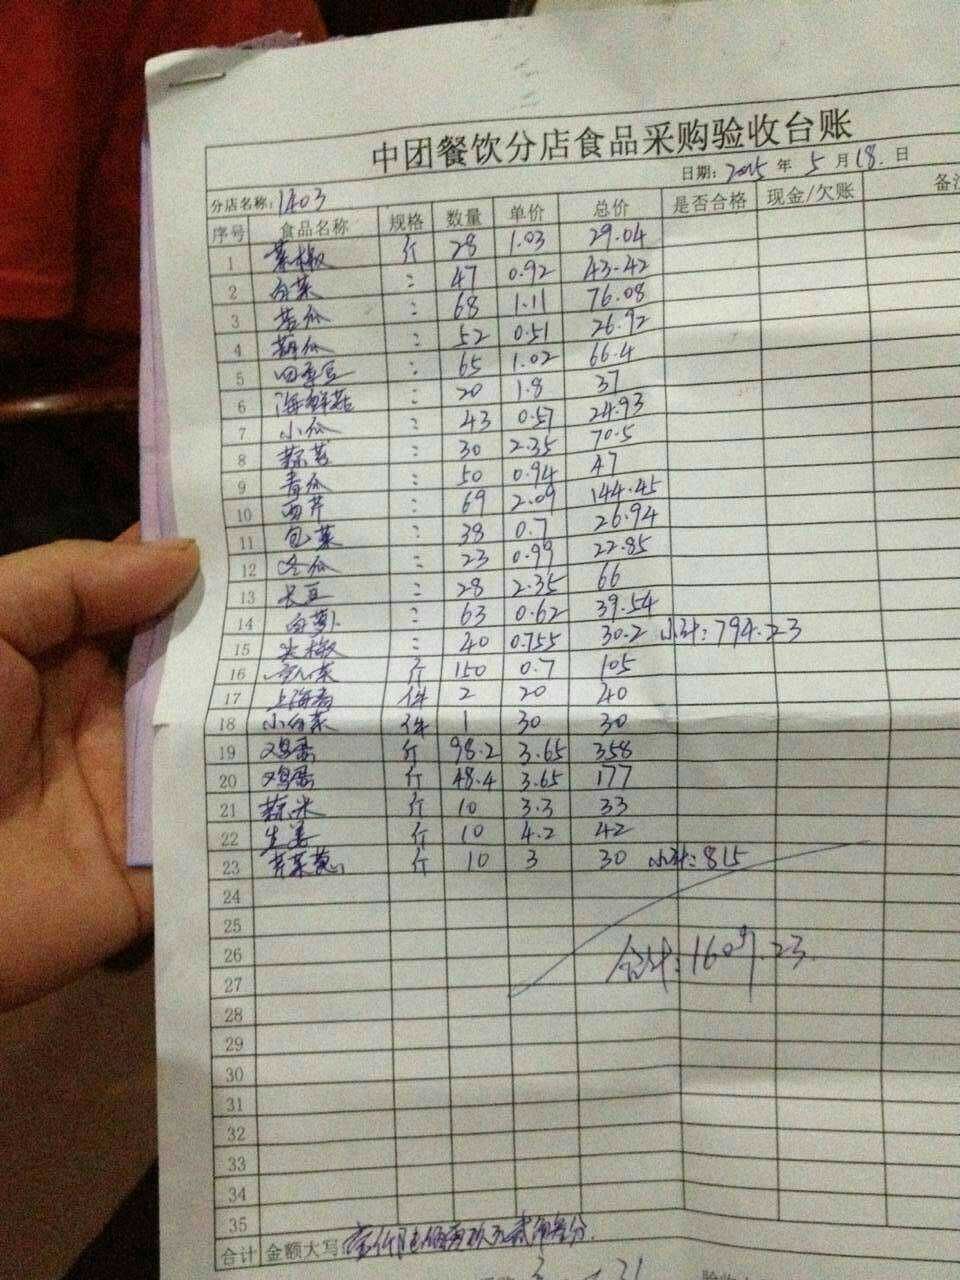 中团餐饮分店食品采购验收台账
日期: 2015 年 5 月 18. 日
分店名称: 1403
序号 食品名称 规格 数量 单价 总价 是否合格 现金/欠账 备注
1 菜椒 斤 28 1.03 29.04
2 白菜 : 47 0.92 43.42
3 苦瓜 : 68 1.11 76.08
4 葫瓜 : 52 0.51 26.92
5 四季豆 : 65 1.02 66.4
6 海鲜菇 : 20 1.8 37
7 小瓜 : 43 0.57 24.93
8 蒜苔 : 30 2.35 70.5
9 青瓜 : 50 0.94 47
10 西芹 : 69 2.09 144.45
11 包菜 : 38 0.7 26.94
12 冬瓜 : 23 0.99 22.85
13 长豆 : 28 2.35 66
14 白萝卜 : 63 0.62 39.54
15 尖椒 : 40 0.755 30.2 小计: 794.23
16 斤 150 0.7 105
17 上海青 件 2 20 40
18 小白菜 件 1 30 30
19 鸡蛋 斤 98.2 3.65 358
20 鸡蛋 斤 48.4 3.65 177
21 蒜米 斤 10 3.3 33
22 生姜 斤 10 4.2 42
23 芹菜葱 斤 10 3 30 小计: 815
24
25
26 合计: 1609.23
27
28
29
30
31
32
33
34
35
合计 金额大写: 壹仟陆佰零玖元贰角叁分